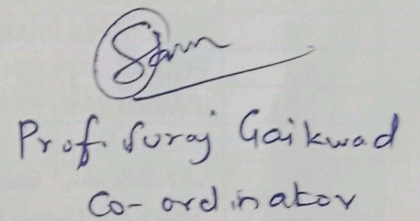 Prof. Suraj Gaikwad
Co-ordinator